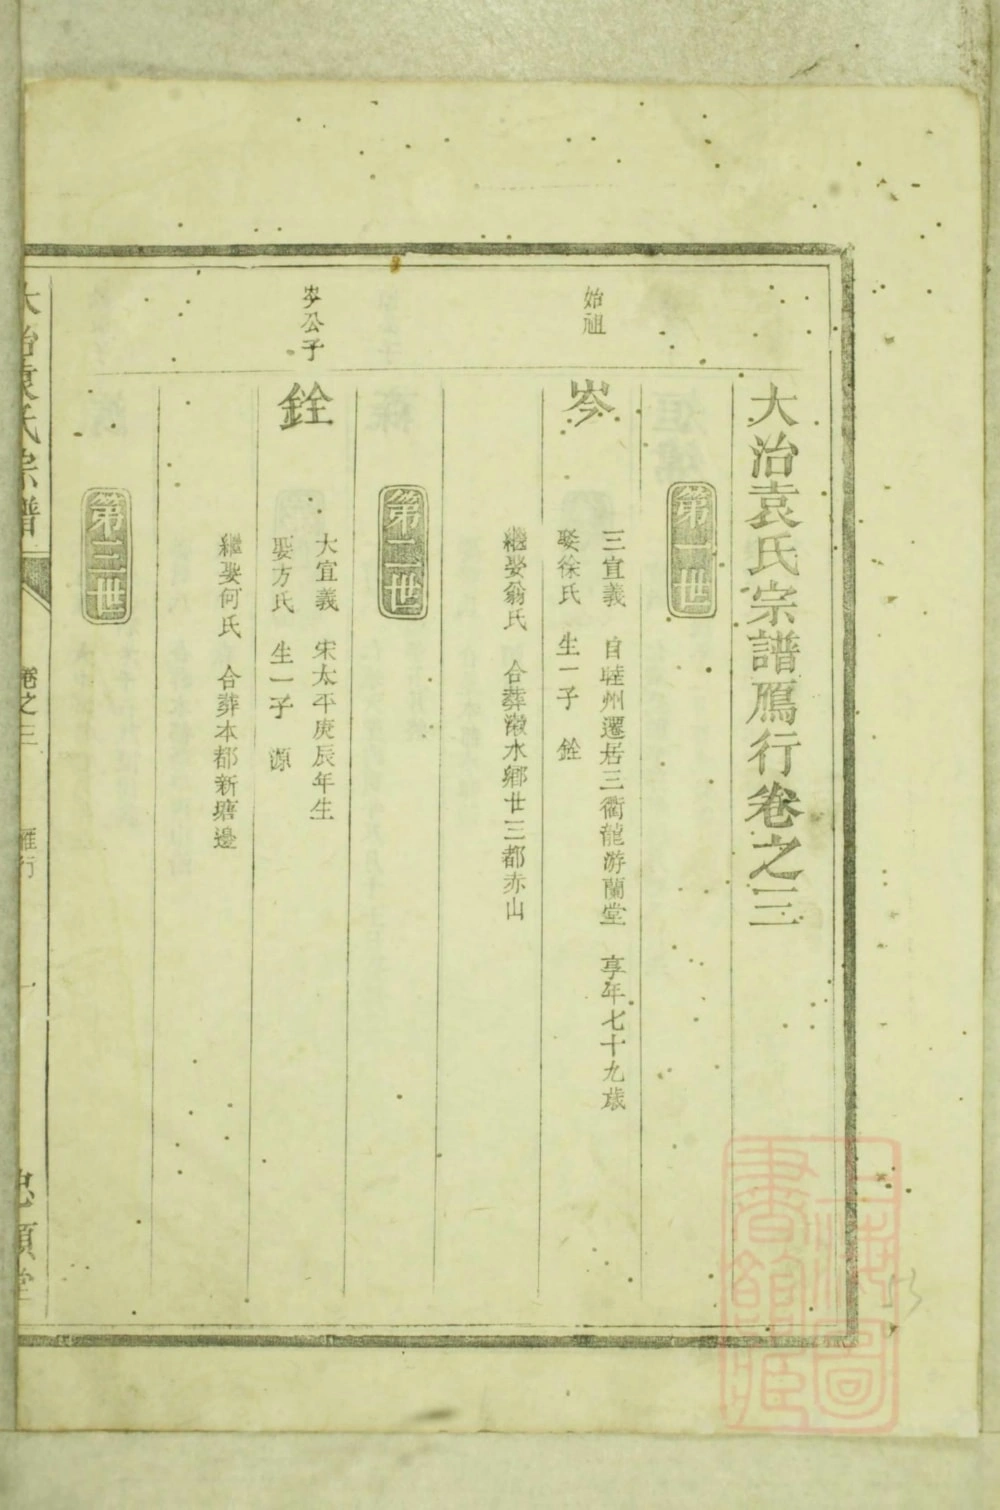 大冶袁氏宗譜鴈行卷之三
第一世
始祖
岑
三宜義　自睦州遷居三衢龍游蘭堂　享年七十九歳
娶徐氏　生一子　銓
繼娶翁氏　合葬瀫水鄉廿三都赤山
第二世
岑公子
銓
大宜義　宋太平庚辰年生
娶方氏　生一子　源
繼娶何氏　合葬本都新塘邊
第三世
大冶袁氏宗譜
卷之三
雁行
一
忠順堂
上海圖書館藏